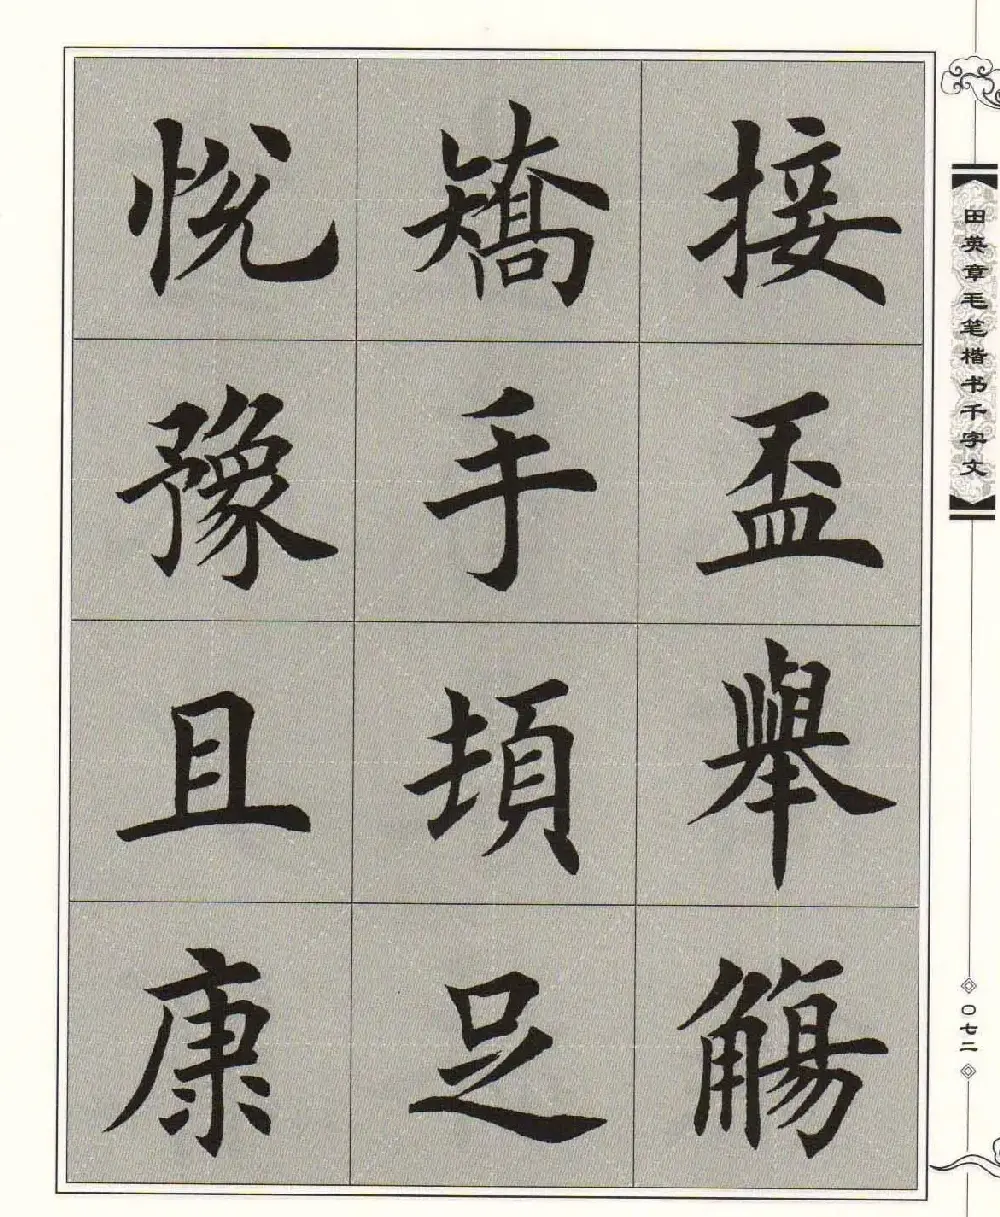 接盃舉觴
矯手頓足
悅豫且康
田英章毛笔楷书千字文
〇七二